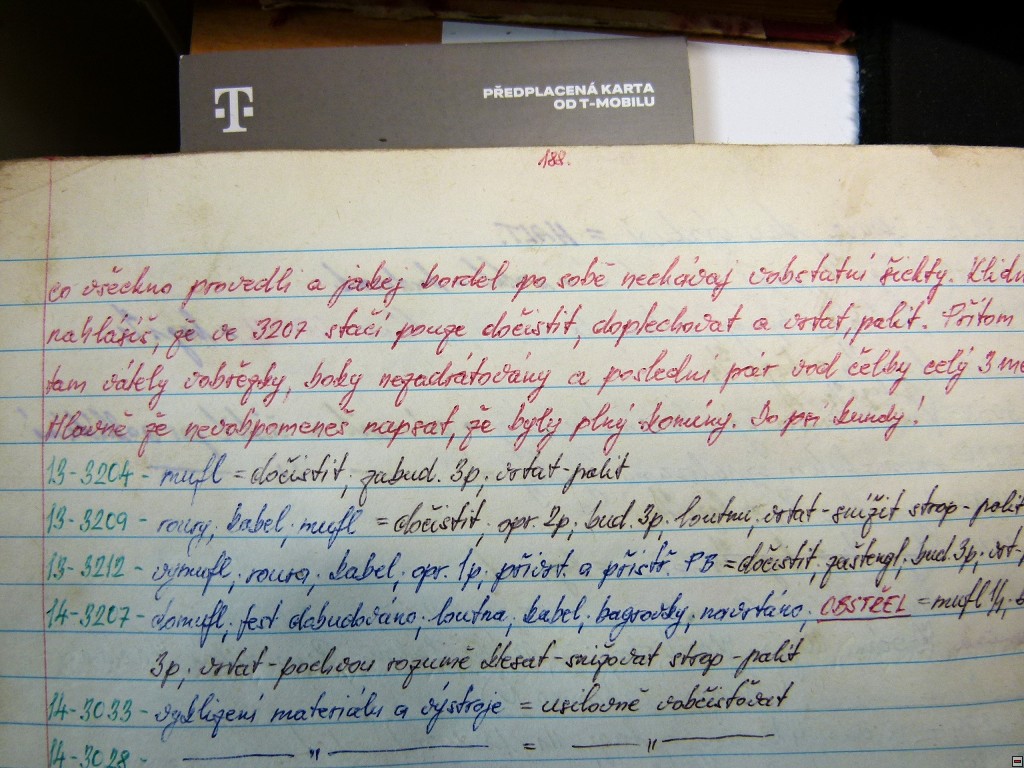 PŘEDPLACENÁ KARTA
OD T-MOBILU
188.
co všechno provedli a jakej bordel po sobě nechávaj vobstatní šichty. Klidn
nahlásíš, že ve 3207 stačí pouze dočistit, doplechovat a vrtat, palit. Přitom
tam vátely vobřezky, boky nezadrátovány a poslední pár vod čelby celý 3 me
Hlavně že nevobpomeneš napsat, že byly plný komíny. Do psí kundy!
13-3204 - mufl = dočistit; zabud. 3p; vrtat-palit
13-3209 - roury; kabel; mufl = dočistit; opr. 2p; bud. 3p. loutnu; vrtat-snížit strop-palit
13-3212 - vymufl; roura; kabel; opr. 1p; přivrt. a přistř. PB = dočistit; zaštengl. bud. 3p; vrt-
14-3207 - domufl; fest dobudováno; loutna; kabel; bagrovky; navrtáno; OBSTŘEL = mufl 1/1;
3p; vrtat-pochvou rozumě klesat-snižovat strop-palit
14-3033 - vyklizení materiálu a výstroje = usilovně vobčisťovat
14-3028 - —— " —— = —— " ——